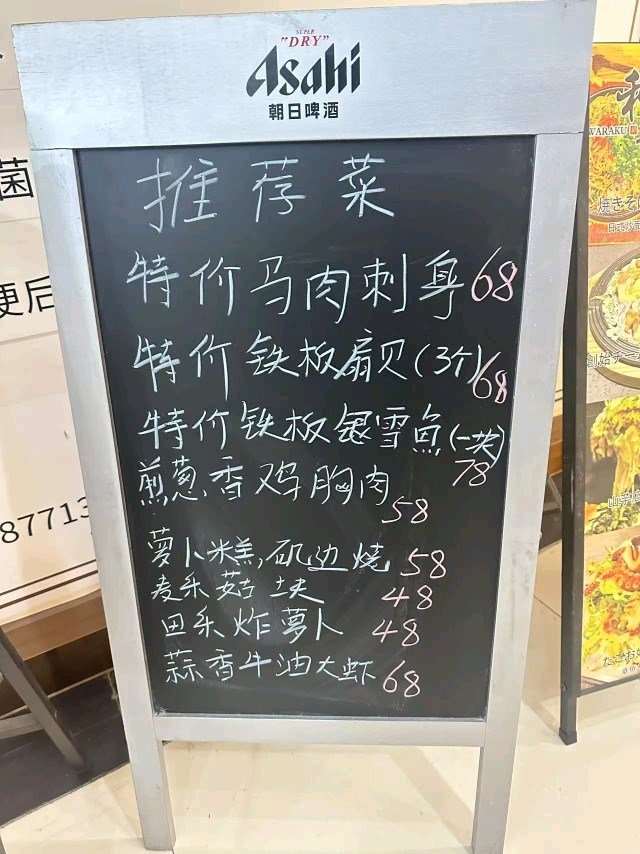 SUPER
"DRY"
Asahi
朝日啤酒
推荐菜
特价马肉刺身 68
特价铁板扇贝(3个) 68
特价铁板银雪魚(一块) 78
煎葱香鸡胸肉 58
萝卜糕,矶边烧 58
麦乐菇块 48
田乐炸萝卜 48
蒜香牛油大虾 68
菌
更后
8771
WARAKU
焼きそば
日式炒面
創始チー